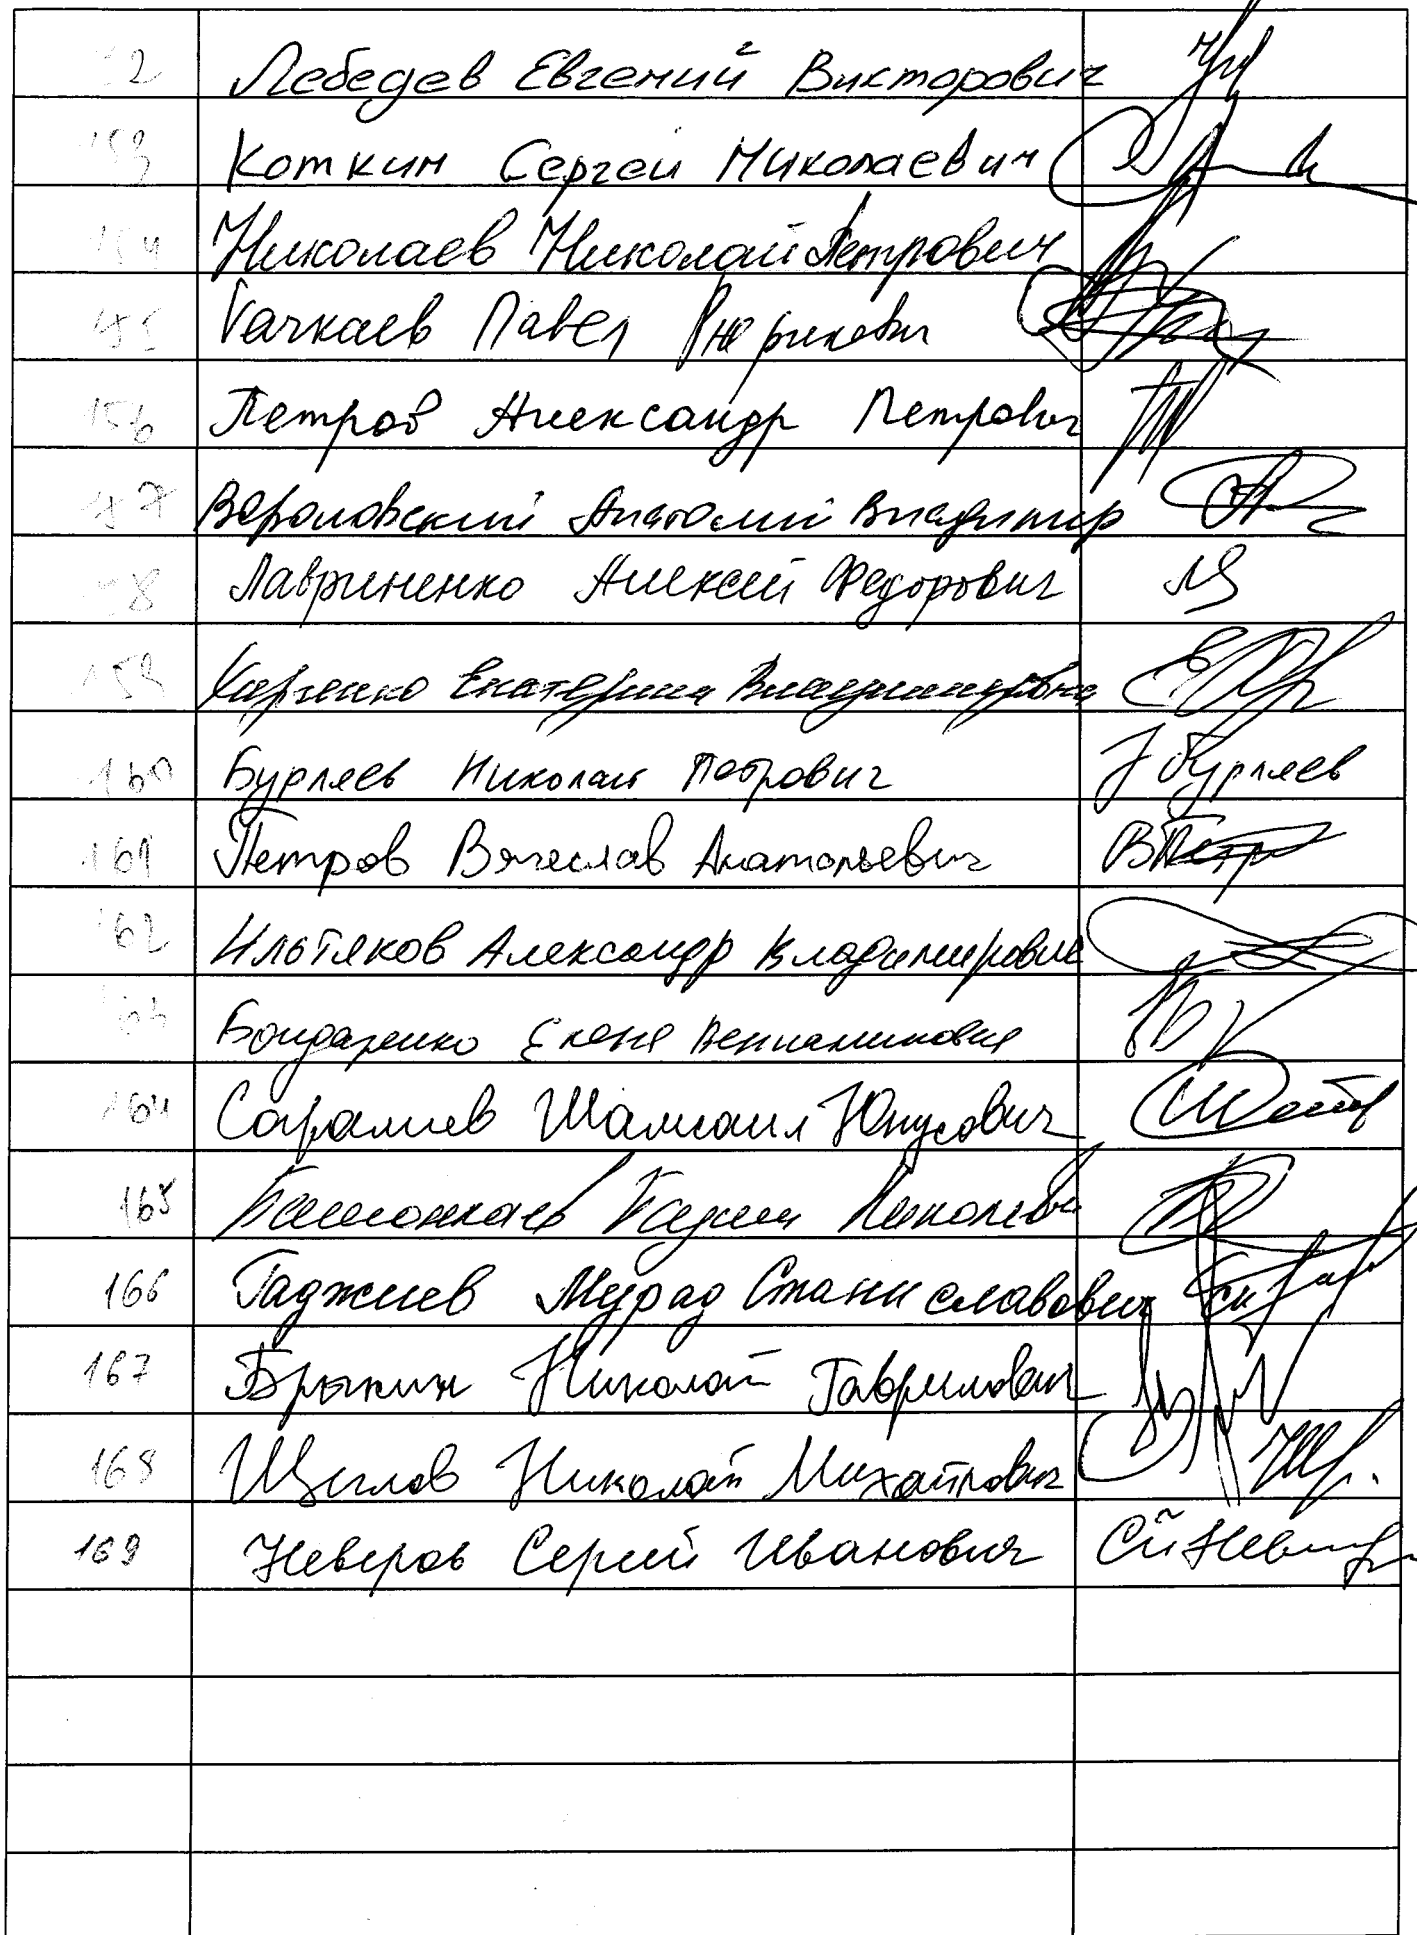 Лебедев Евгений Викторович
153 Коткин Сергей Николаевич
154 Николаев Николай Петрович
Качкаев Павел Рюрикович
156 Петров Александр Петрович
Анатолий Владимир
Лавриненко Алексей Федорович
159 Харченко Екатерина Владимировна
160 Бурляев Николай Петрович Бурляев
161 Петров Вячеслав Анатольевич ВПетр
162 Ильтяков Александр Владимирович
Бондаренко Елена Вениаминовна
164 Саралиев Шамсаил Юнусович
165 Николаеви
166 Гаджиев Мурад Станиславович
167 Брыкин Николай Гаврилович
168 Щеглов Николай Михайлович
169 Неверов Сергей Иванович